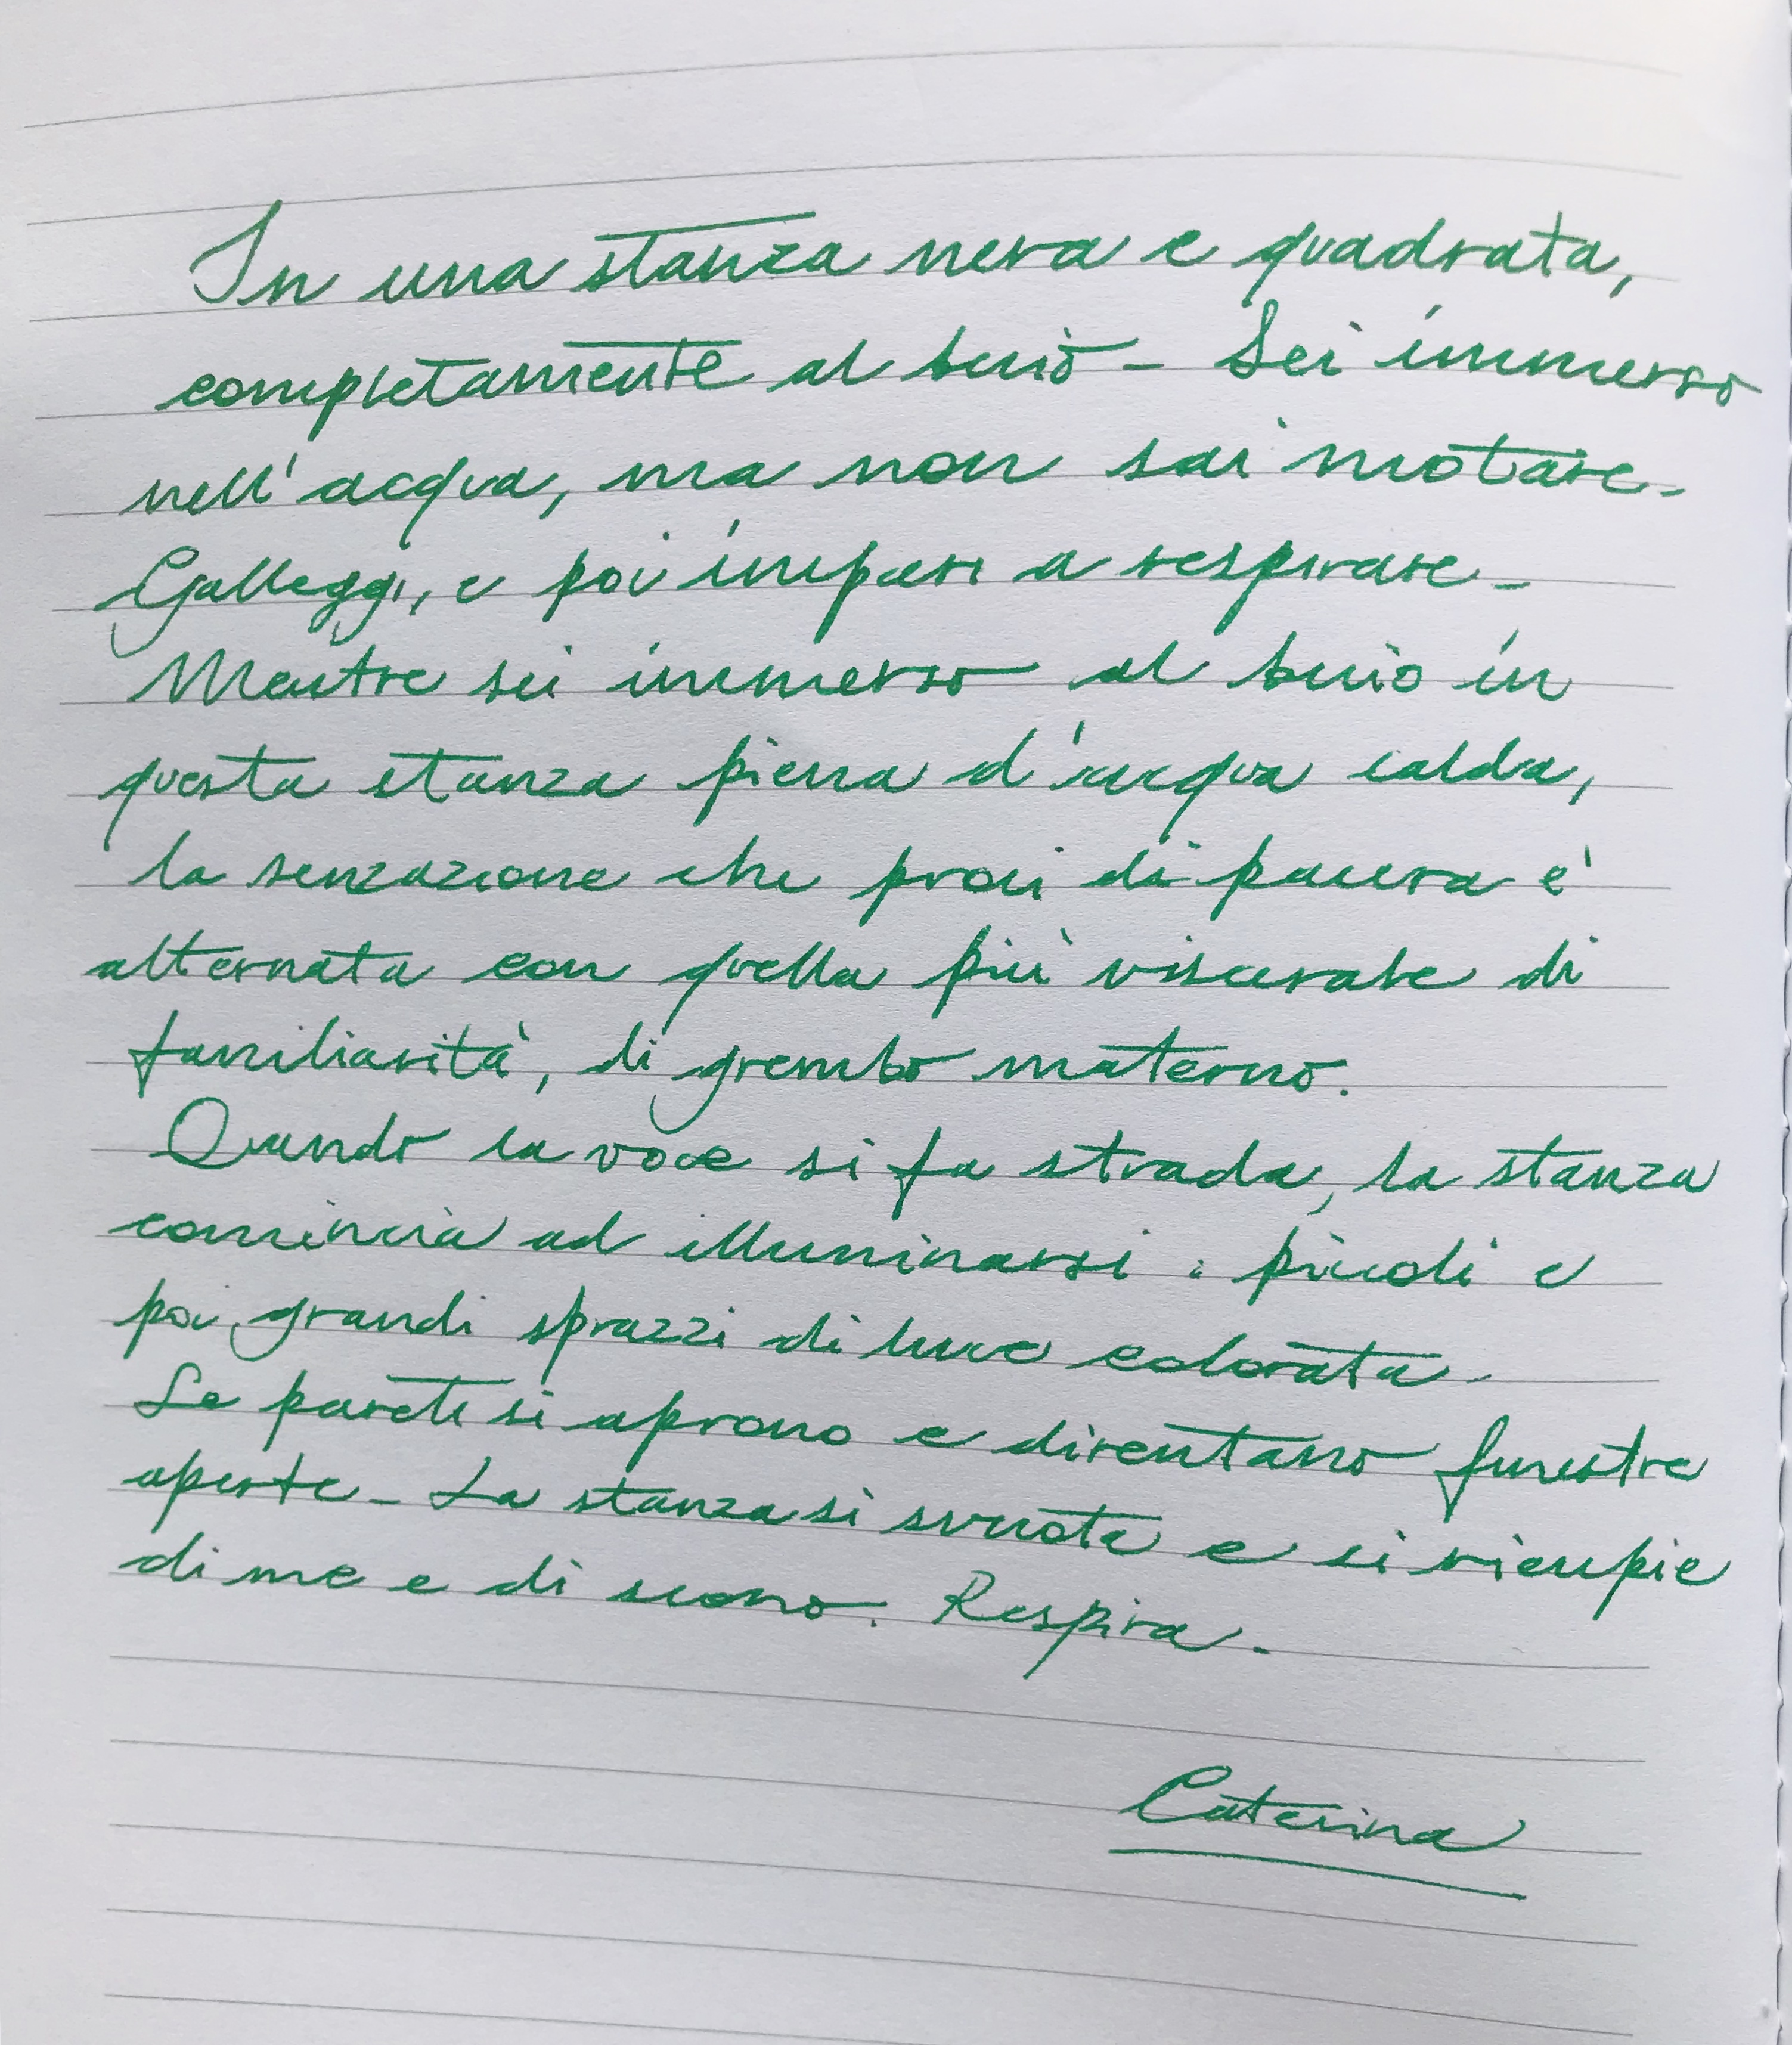 In una stanza nera e quadrata,
completamente al buio - Sei immerso
nell'acqua, ma non sai nuotare.
Galleggi, e poi impari a respirare -
Mentre sei immerso al buio in
questa stanza piena d'acqua calda,
la sensazione che provi di paura è
alternata con quella più viscerale di
familiarità, di grembo materno.
Quando la voce si fa strada, la stanza
comincia ad illuminarsi: piccoli e
poi grandi sprazzi di luce colorata -
Le pareti si aprono e diventano finestre
aperte - La stanza si svuota e si riempie
di me e di suono. Respira -
Caterina